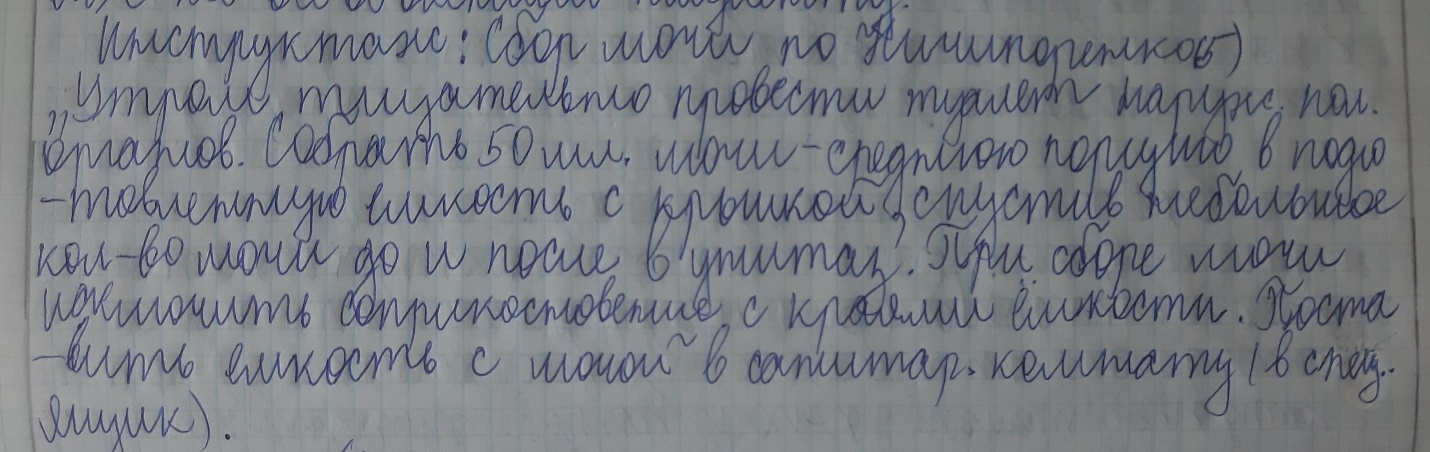 Инструктаж: Сбор мочи по Ничипоренков)
„Утром тщательно провести туалет наружн. пол.
органов. Собрать 50 мл. мочи - среднюю порцию в подго
-товленную емкость с крышкой, спустив небольшое
кол-во мочи до и после в унитаз. При сборе мочи
исключить соприкосновение с краями ёмкости. Поста
-вить емкость с мочой в санитар. комнату (в спец.
ящик).